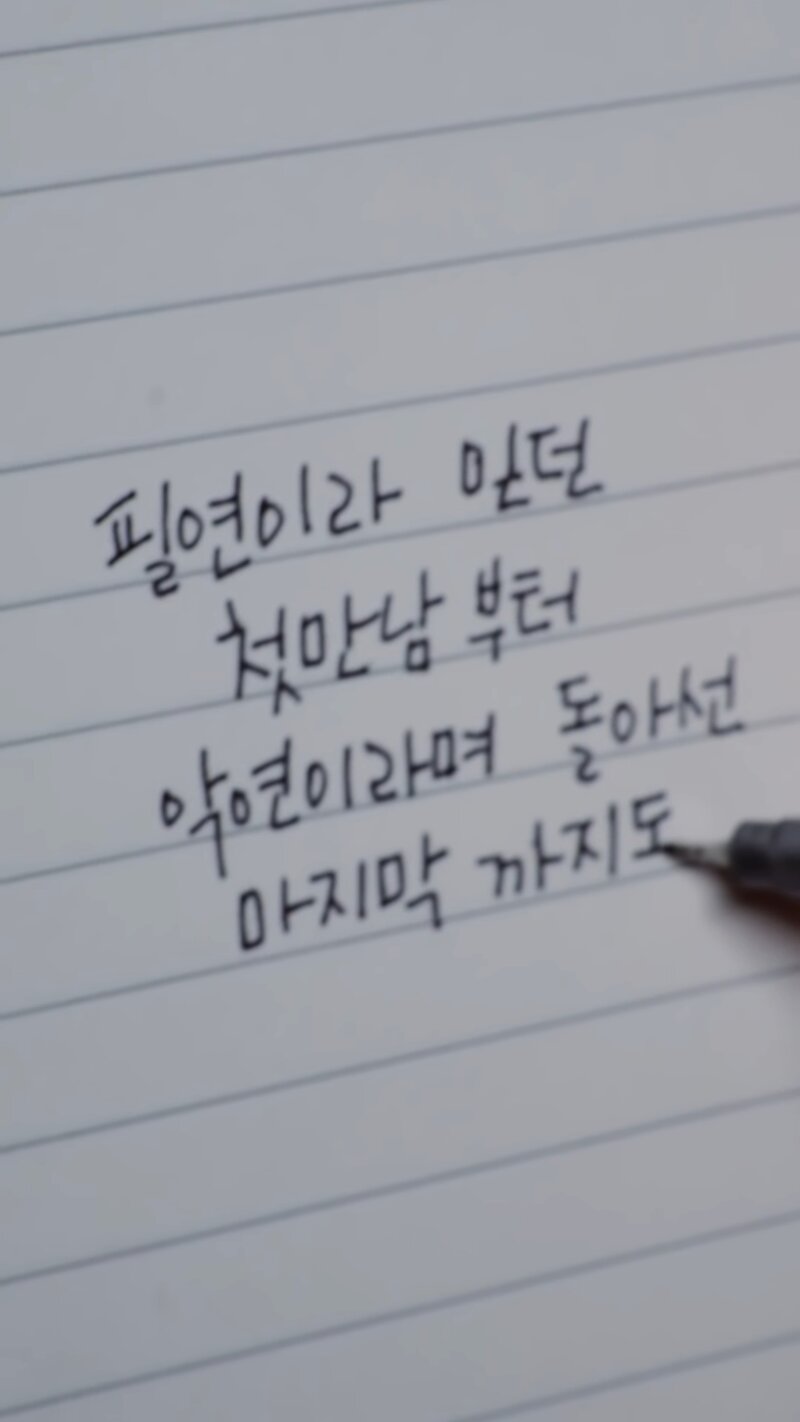 필연이라 믿던
첫만남 부터
악연이라며 돌아선
마지막 까지도